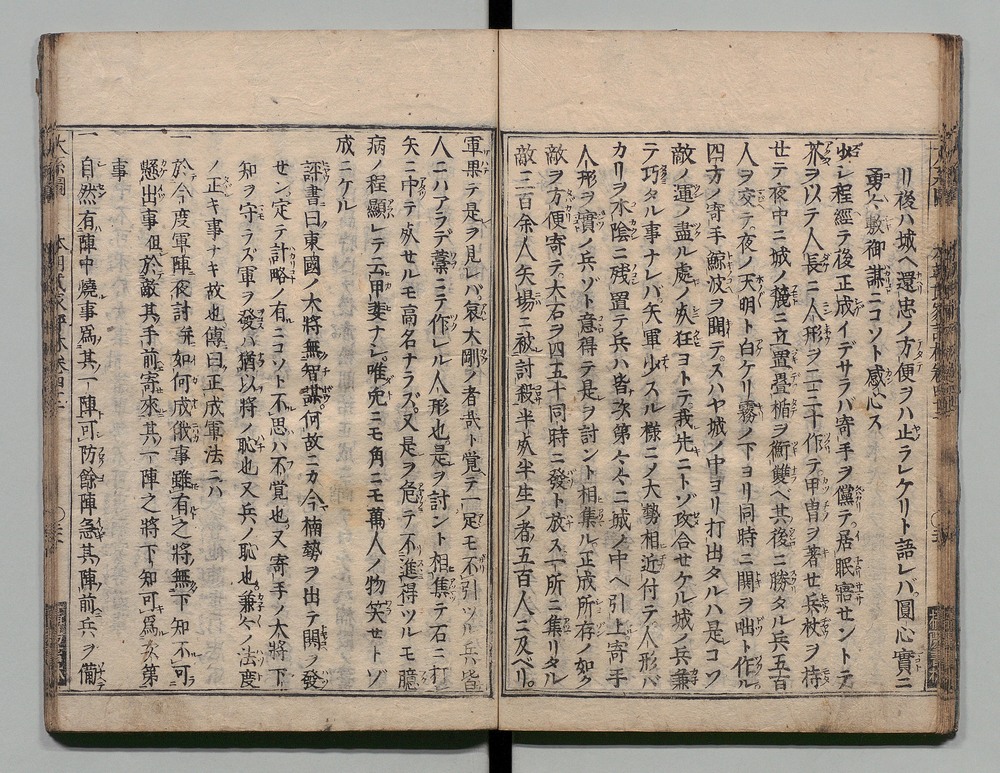 リ後ハ城ヘ還忠ノ方便ヲハ止ラレケリト語レバ圓心實ニ
勇々敷御謀ニコソト感心ス
少シ程經テ後正成イデサラバ寄手ヲ儻テ居眠寤セントテ
芥ヲ以テ人長ニ人形ヲ二三十作テ甲冑ヲ著セ兵杖ヲ持
セテ夜中ニ城ノ麓ニ立置疊楯ヲ衝雙ベ其後ニ勝タル兵五百
人ヲ交テ夜ノ天明ト白ケリ霧ノ下ヨリ同時ニ鬨ヲ咄ト作ル
四方ノ寄手鯨波ヲ聞テスハヤ城ノ中ヨリ打出タルハ是コソ
敵ノ運ノ盡ル處ノ死狂ヨトテ我先ニトゾ攻合セケル城ノ兵兼
テ巧タル事ナレバ矢軍少スル様ニノ大勢相近付テ人形バ
カリヲ木陰ニ残置テ兵ハ皆次第々々ニ城ノ中ヘ引上寄手
人形ヲ實ノ兵ゾト意得テ是ヲ討ント相集ル正成所存ノ如ク
敵ヲ方便寄テ大石ヲ四五十同時ニ發ト放ス一所ニ集リタル
敵三百余人矢場ニ被討殺半死半生ノ者五百人ニ及ベリ
軍果テ是ヲ見レバ哀大剛ノ者哉ト覚テ一定モ不引ツル兵皆
人ニハアラデ藁ニテ作レル人形也是ヲ討ント相集テ石ニ打
矢ニ中テ死セルモ高名ナラズ又是ヲ危テ不進得ツルモ臆
病ノ程顯レテ云甲斐ナシ唯兎ニモ角ニモ萬人ノ物笑セトゾ
成ニケル
評書曰東國ノ大將無智謀何故ニカ今楠勢ヲ出テ鬨ヲ發
セン定テ計略ノ有ニコソト不思ハ不覚也又寄手ノ大將下
知ヲ守ラズ軍ヲ發バ猶以將ノ恥也又兵ノ恥也兼々ノ法度
ノ正キ事ナキ故也傳曰正成軍法ニハ
一於今度軍陣夜討并如何成俄事雖有之將無下知不可
懸出事但於敵其手前寄來其一陣之將下知可爲次第
事
一自然有陣中燒事爲其一陣可防餘陣急其陣前兵ヲ備